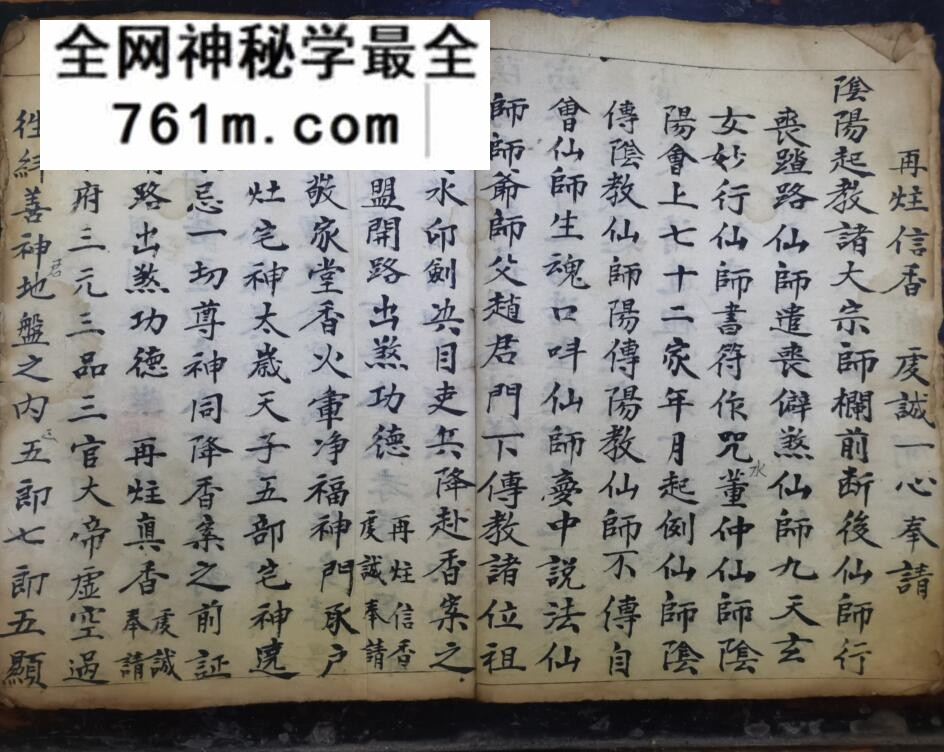 全网神秘学最全
761m.com
再炷信香 虔誠一心奉請
陰陽起教諸大宗師欄前断後仙師行
喪蹱路仙師遣喪僻煞仙師九天玄
女妙行仙師書符作咒董仲仙師陰
水
陽會上七十二家年月起例仙師陰
傳陰教仙師陽傳陽教仙師不傳自
會仙師生魂口呌仙師夣中説法仙
師師爺師父趙君門下傳教諸位祖
水印劍决目吏兵降赴香案之
盟開路出煞功德 再炷信香 虔誠奉請
敬家堂香火軍净福神門承户
灶宅神太歲天子五部宅神遶
忌一切尊神同降香案之前証
路出煞功德 再炷真香 虔誠奉請
府三元三品三官大帝虚空過
徃糾善神地盤之内五郎七郎五顯
君